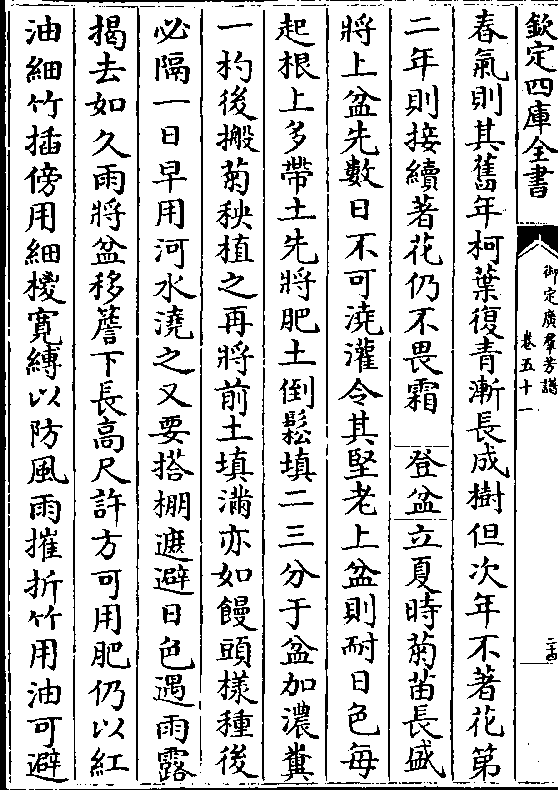 欽定四庫全書
御定廣羣芳譜
卷五十一
春氣則其舊年柯葉復青漸長成樹但次年不著花第
二年則接續著花仍不畏霜　登盆立夏時菊苗長盛
將上盆先數日不可澆灌令其堅老上盆則耐日色每
起根上多帶土先將肥土倒鬆填二三分于盆加濃糞
一杓後搬菊秧植之再將前土填滿亦如饅頭樣種後
必隔一日早用河水澆之又要搭棚遮避日色遇雨露
揭去如久雨將盆移簷下長高尺許方可用肥仍以紅
油細竹插傍用細椶寛縛以防風雨摧折竹用油可避